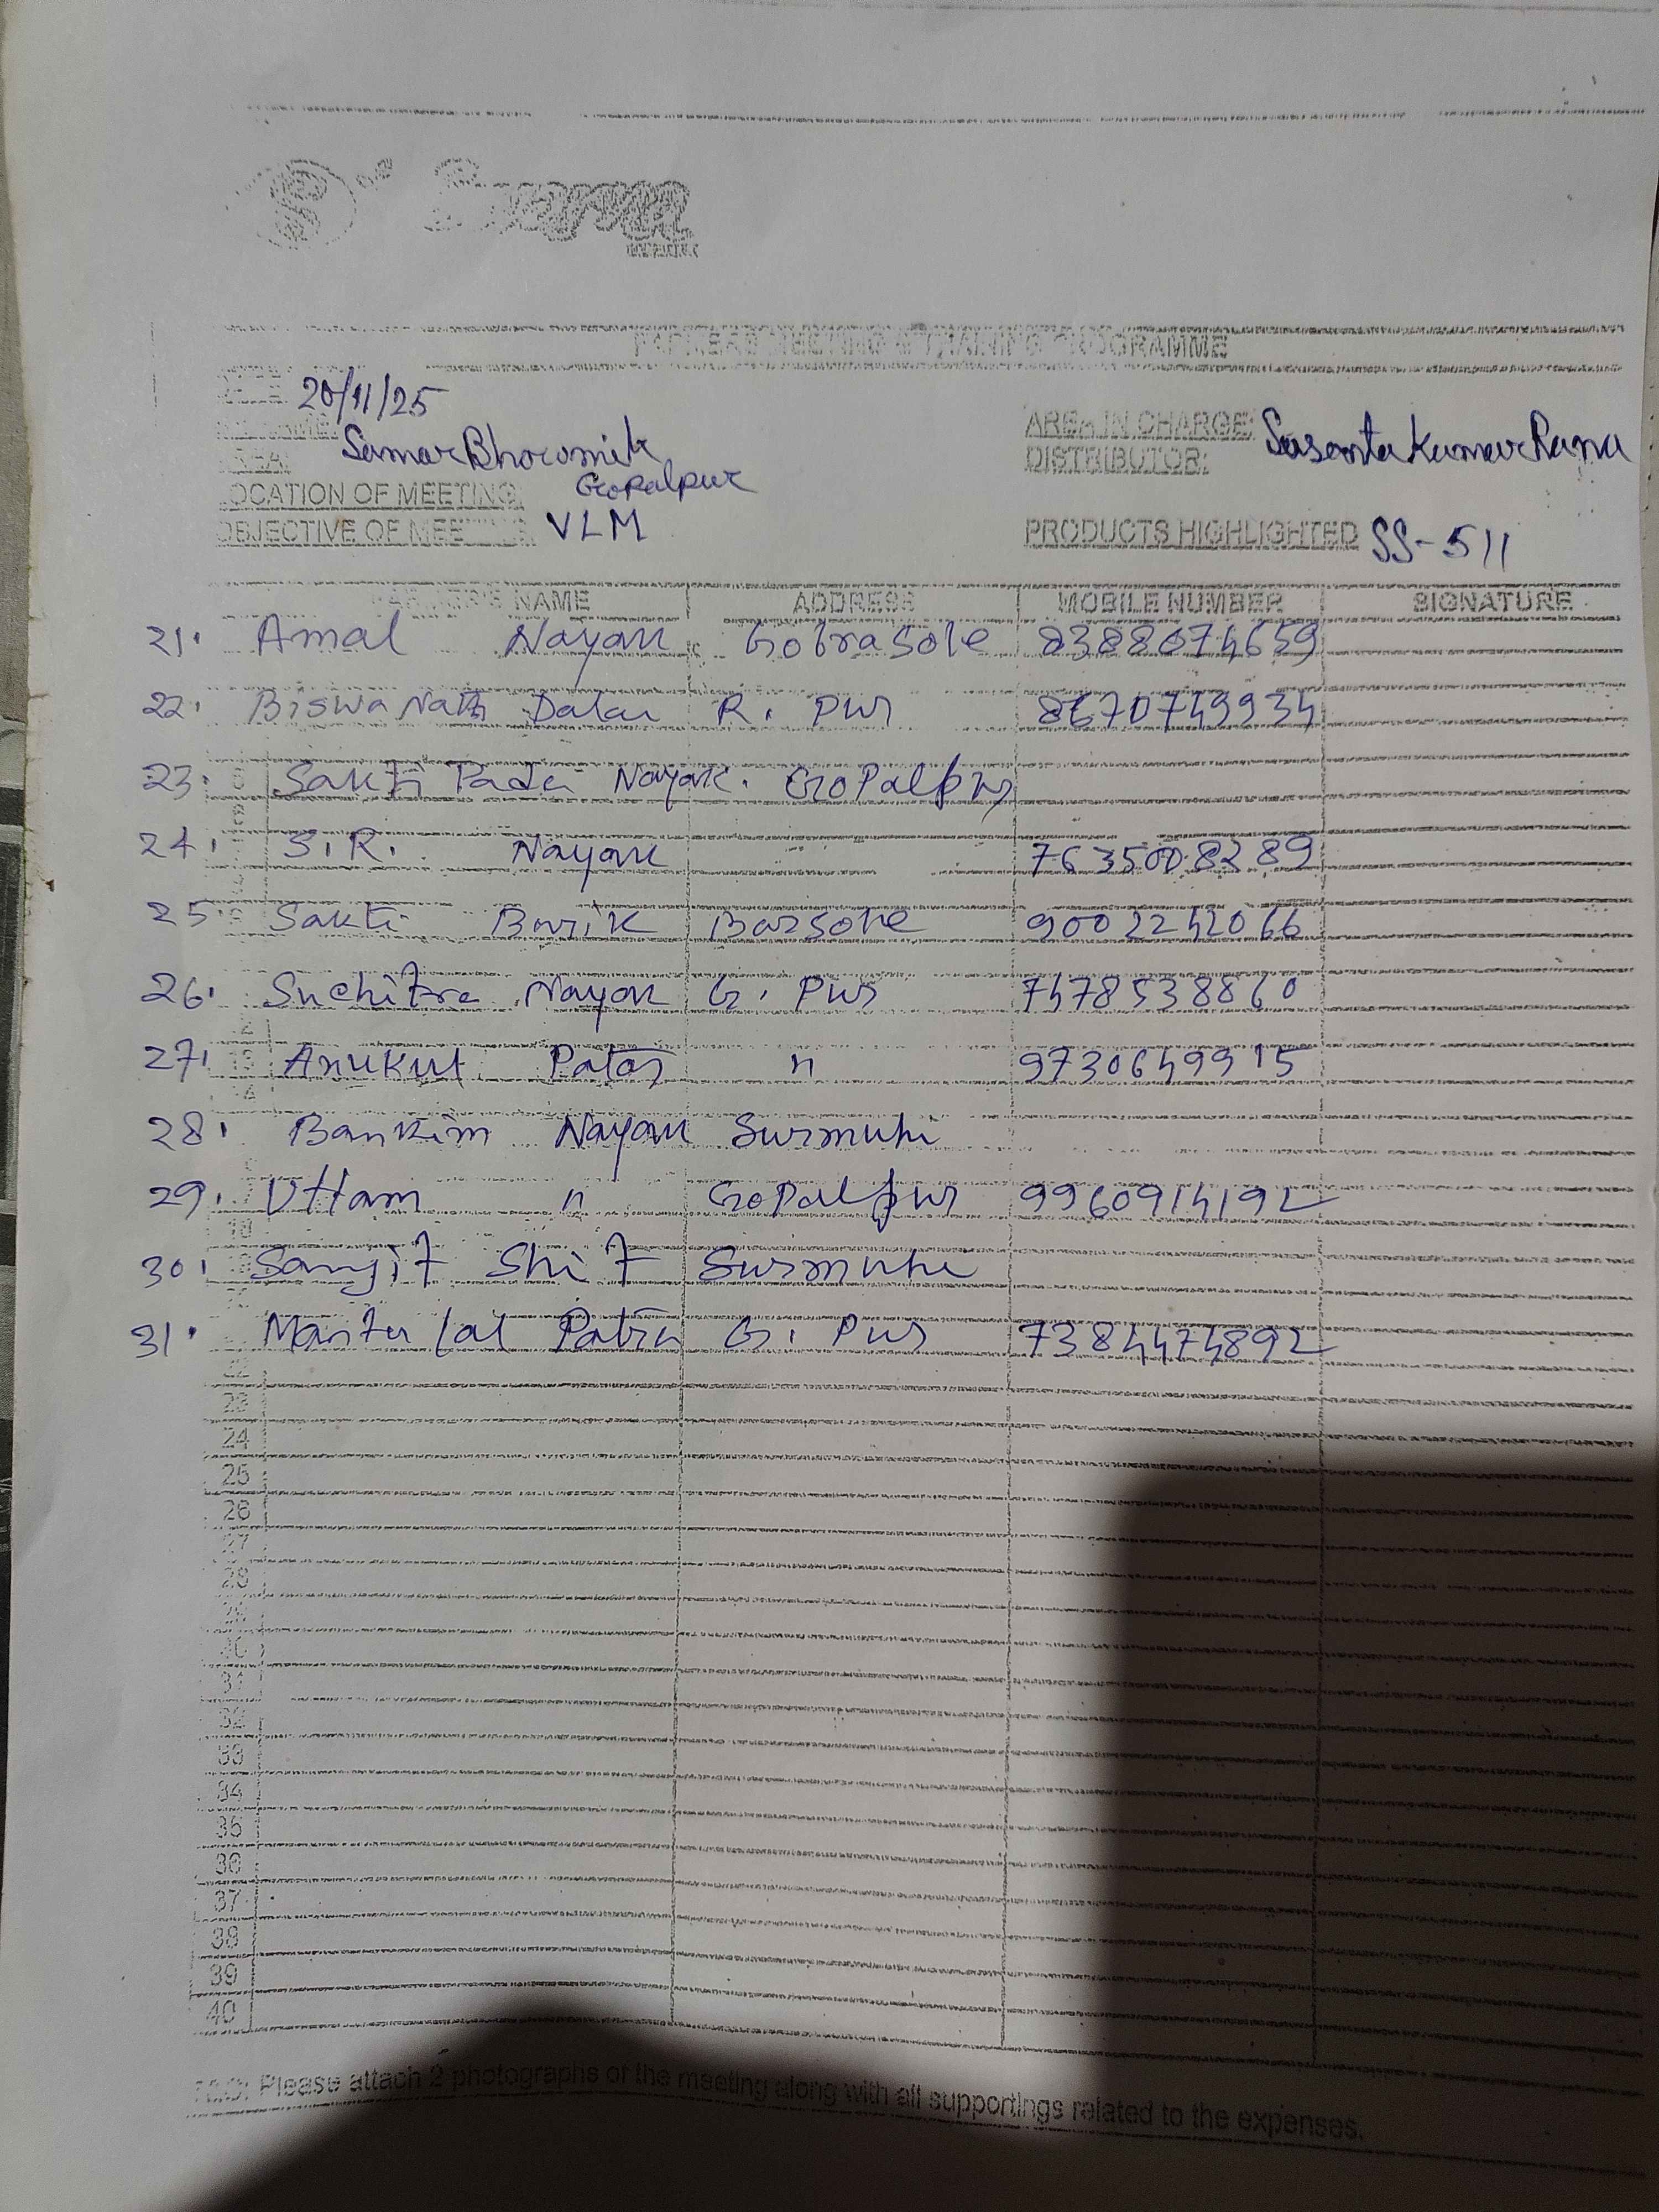 MEETING & TRAINING PROGRAMME
20/11/25
AREA IN CHARGE: Susanta Kumar Rana
NAME: Samar Bhowmik
DISTRIBUTOR:
AREA:
LOCATION OF MEETING: Gopalpur
OBJECTIVE OF MEETING: VLM
PRODUCTS HIGHLIGHTED SS-511
NAME ADDRESS MOBILE NUMBER SIGNATURE
21. Amal Nayak Gobrasole 8388074659
22. Biswanath Dalai R. Pur 8670749934
23. Sakti Pada Nayak. Gopalpur
24. S.R. Nayak 7635008289
25. Sakti Barik Barsole 9002242066
26. Suchitra Nayak G. Pur 7478538860
27. Anukul Patra n 9730649915
28. Bankim Nayak Surmuhi
29. Uttam n Gopalpur 9960914192
30. Shit Surmuhi
31. Mantu lal Patra G. Pur 7384474892
22
23
24
25
26
27
28
31
32
33
34
35
36
37
38
39
40
Please attach 2 photographs of the meeting along with all supportings related to the expenses.